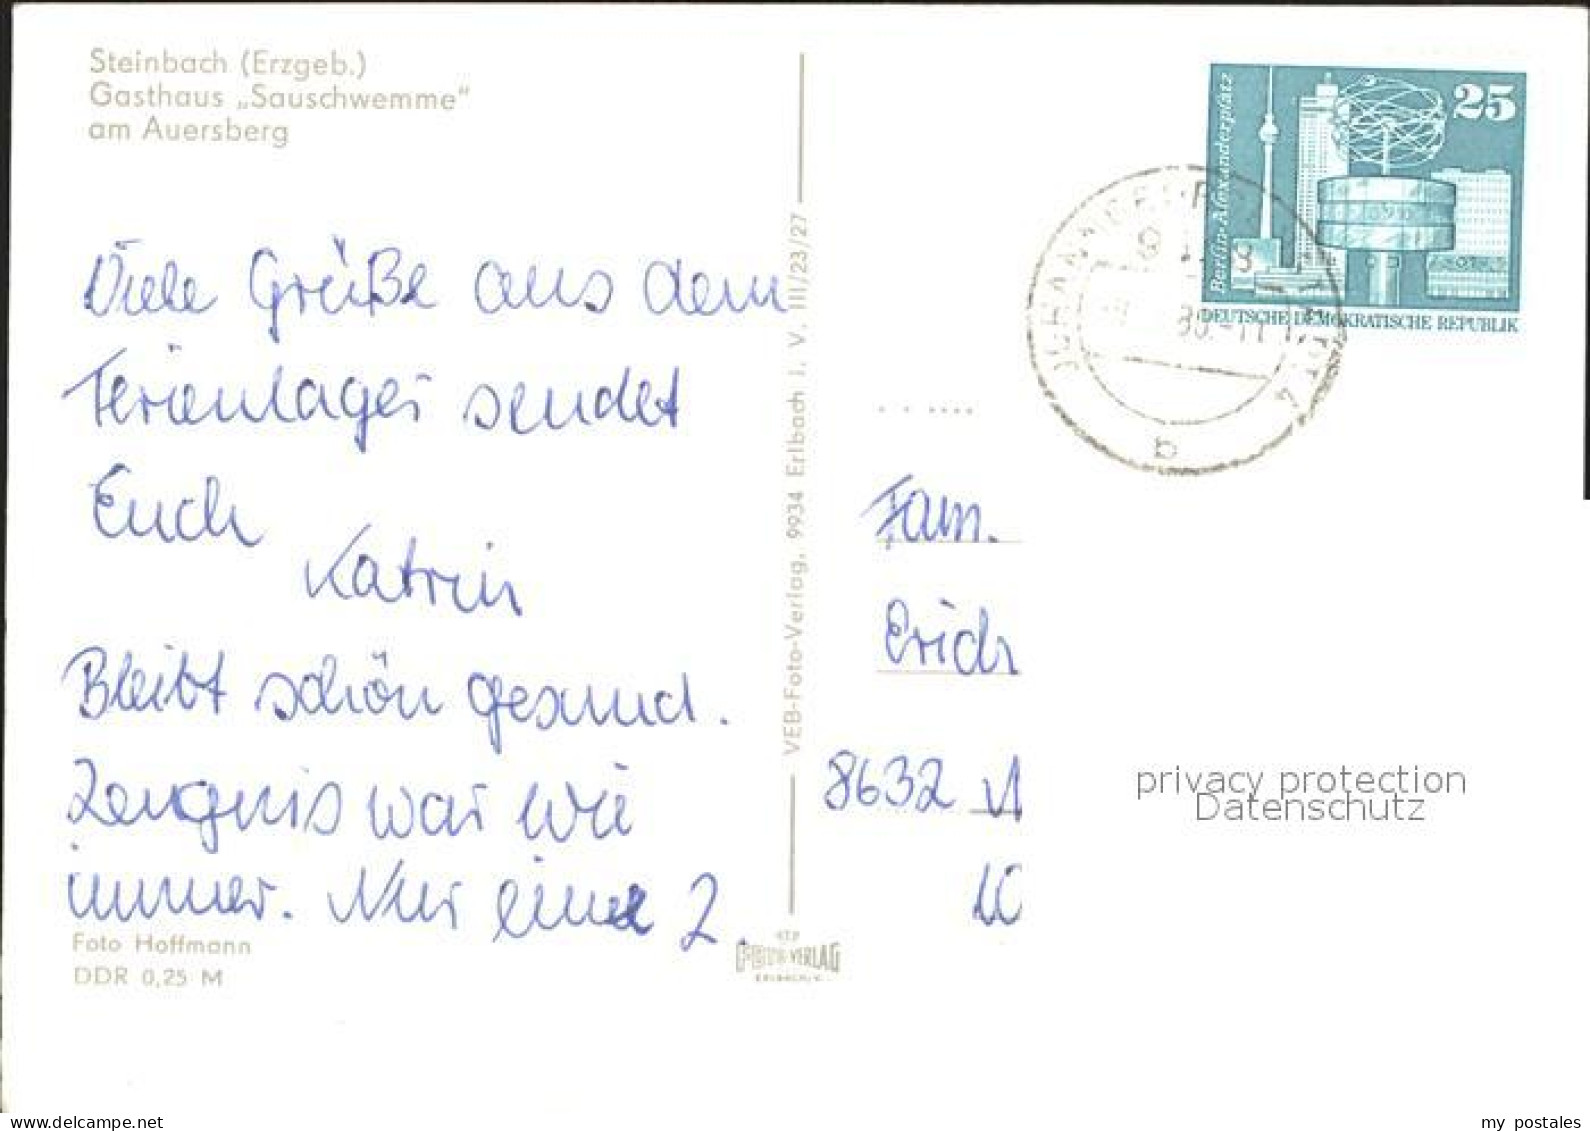 Steinbach (Erzgeb.)
Gasthaus „Sauschwemme“
am Auersberg
Viele Grüße aus dem
Ferienlager sendet
Euch
Katrin
Bleibt schön gesund.
Zeugnis war wie
immer. Nur eine 2.
Foto Hoffmann
DDR 0,25 M
VEB-Foto-Verlag, 9934 Erlbach i. V. III/23/27
FOTO-VERLAG
ERLBACH/V.
25
Berlin-Alexanderplatz
DEUTSCHE DEMOKRATISCHE REPUBLIK
b
Fam.
Erich
8632
privacy protection
Datenschutz
www.delcampe.net
my_postales